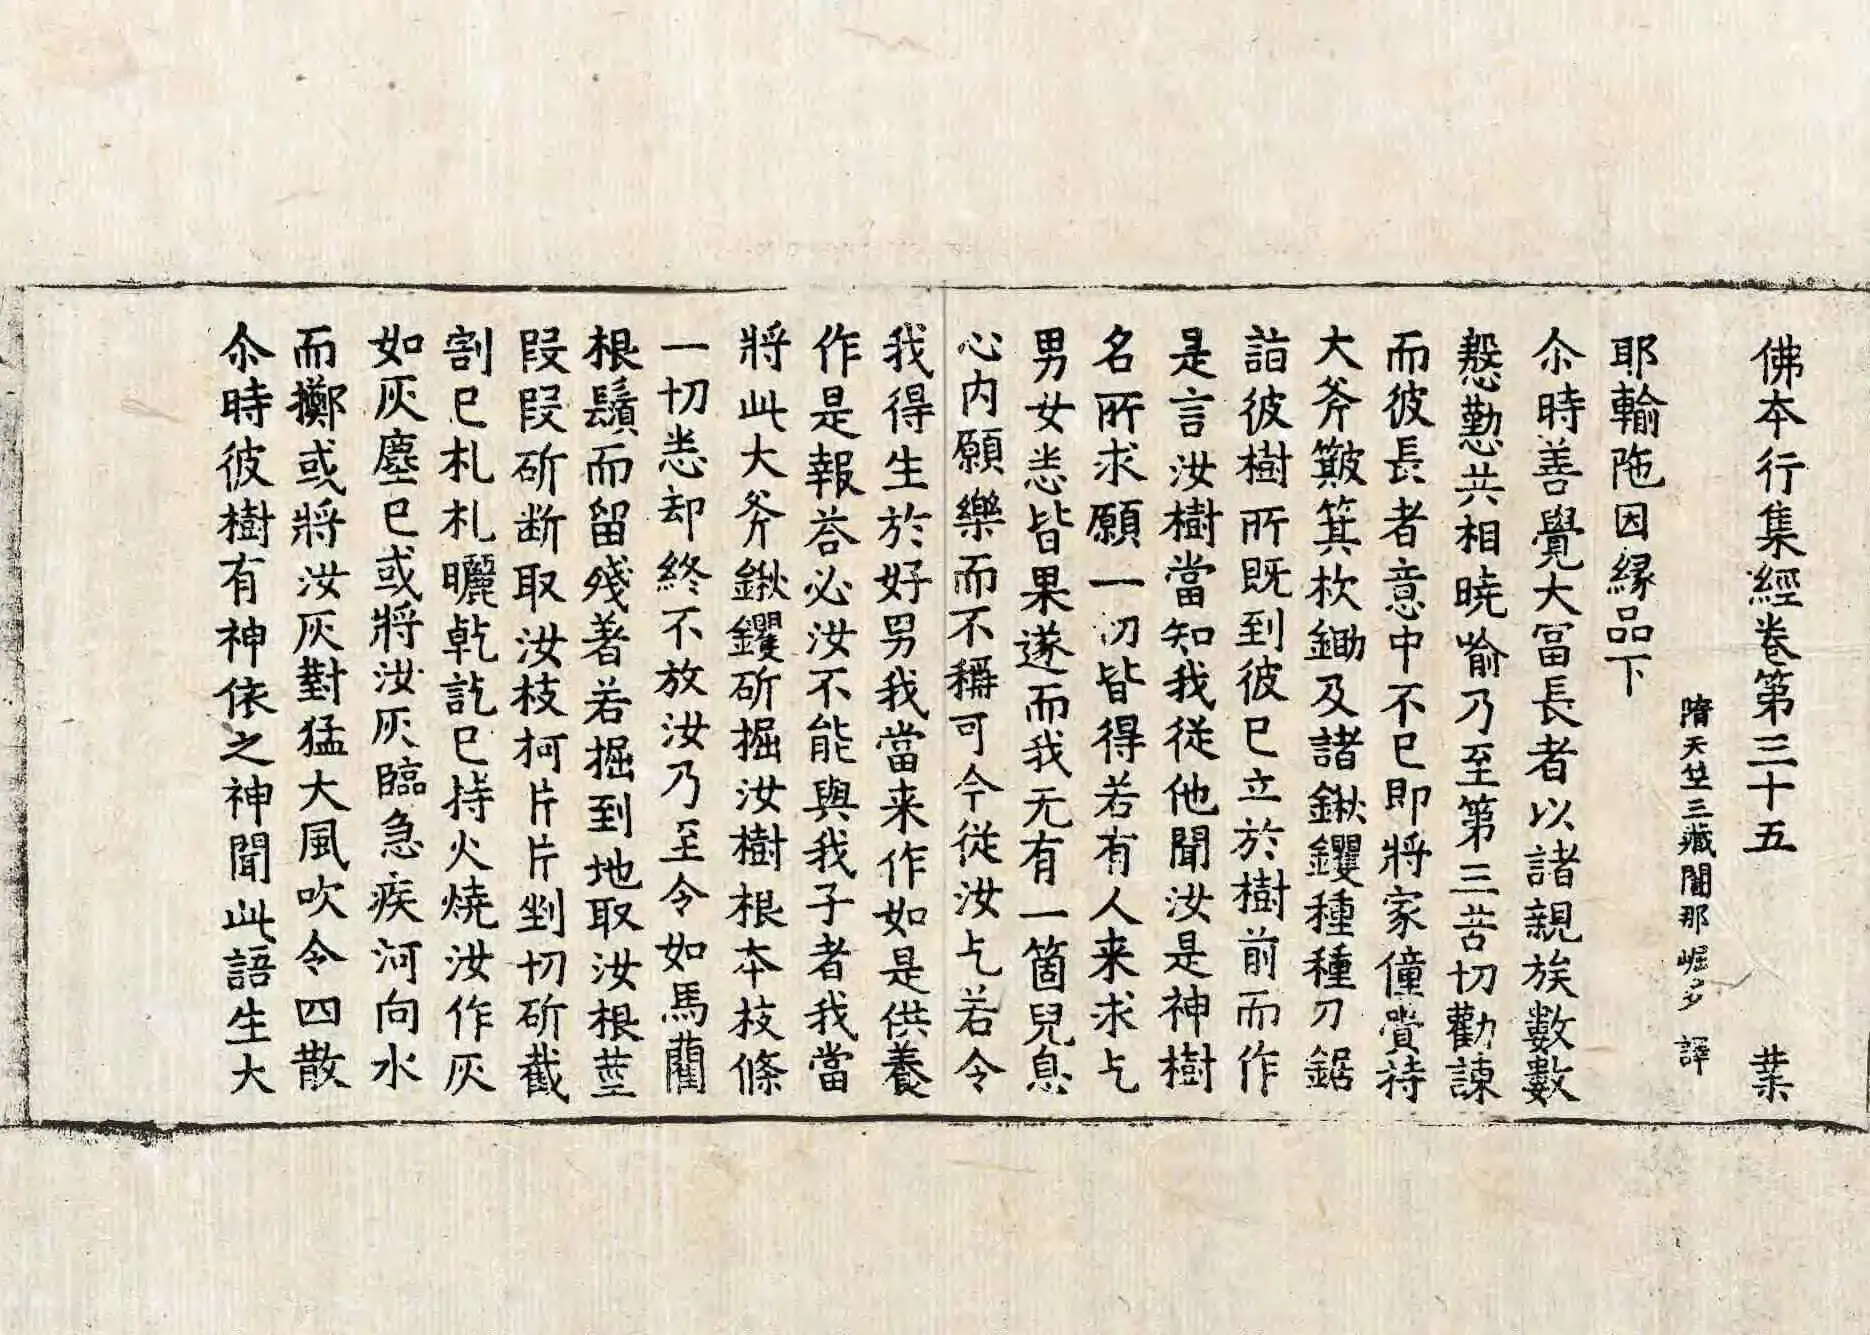 佛本行集經卷第三十五 𦶜
隋天竺三藏闍那崛多 譯
耶輸陁因緣品下
尒時善覺大冨長者以諸親族數數
慇懃共相曉喻乃至第三苦切勸諫
而彼長者意中不已即將家僮賫持
大斧簸箕杴鋤及諸鍬钁種種刀鋸
詣彼樹所既到彼已立於樹前而作
是言汝樹當知我從他聞汝是神樹
名所求願一切皆得若有人来求乞
男女悉皆果遂而我无有一箇兒息
心內願樂而不稱可今從汝乞若令
我得生於好男我當来作如是供養
作是報荅必汝不能與我子者我當
將此大斧鍬钁斫掘汝樹根本枝條
一切悉却終不放汝乃至令如馬藺
根鬚而留殘著若掘到地取汝根莖
段段斫断取汝枝柯片片剉切斫截
割已札札曬乹訖已持火燒汝作灰
如灰塵已或將汝灰臨急疾河向水
而擲或將汝灰對猛大風吹令四散
尒時彼樹有神依之神聞此語生大